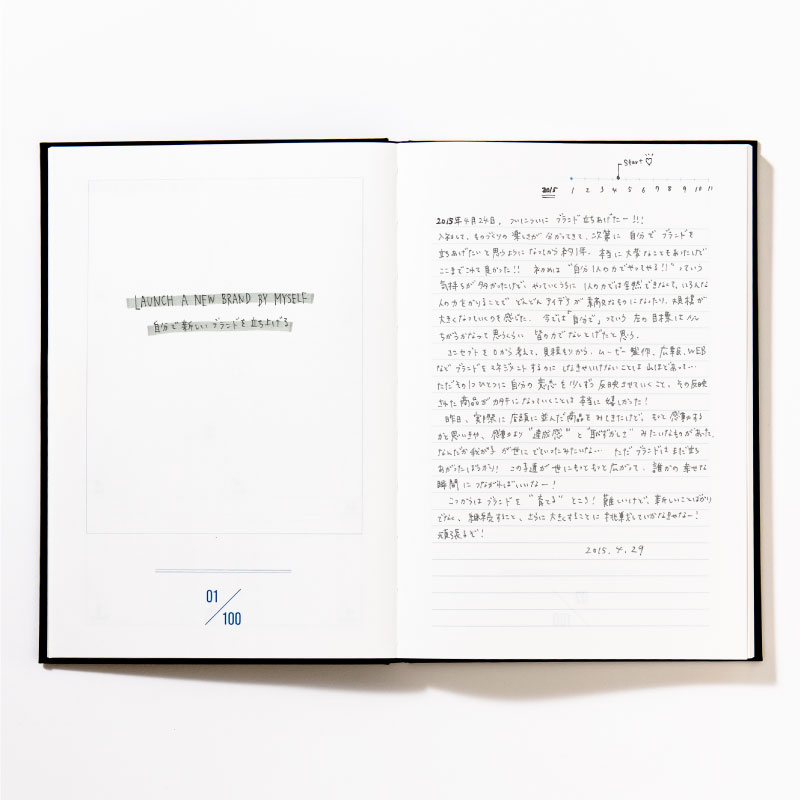 LAUNCH A NEW BRAND BY MYSELF
自分で新しいブランドを立ち上げる
01/100
Start♡
2015 1 2 3 4 5 6 7 8 9 10 11
2015年4月24日。ついについに ブランド立ちあげたー!!!
入社して、ものづくりの楽しさが分かってきて、次第に自分でブランドを
立ちあげたいと思うようになってから約1年。本当に大変なこともあったけど
ここまでこれて良かった!! 初めは"自分1人の力でやってやる!!"っていう
気持ちが多かったけど、やっていくうちに1人の力では全然できなくて、いろんな
人の力をかりることで どんどんアイデアが素敵なものになったり、規模が
大きくなっていくのを感じた。今では「自分で」っていう左の目標は
ちがうかなって思うくらい 皆の力でなしとげたと思う。
コンセプトを0から考えて、見積もりから、ムービー製作、広報、WEB
などブランドをマネジメントするのに しなきゃいけないことは山ほどあって…
ただその1つひとつに自分の意志を少しずつ反映させていくこと、その反映
された商品がカタチになっていくことは本当に嬉しかった!
昨日、実際に店頭に並んだ商品をみてきたけど、もっと感動する
かと思いきや、感動より"達成感"と"恥ずかしさ"みたいなものがあった。
なんだか我が子が世にでていったみたいな… ただブランドはまだ立ち
あがったばかり! この子達が世にもっともっと広がって、誰かの幸せな
瞬間につながればいいなー!
こっからはブランドを"育てる"ところ! 難しいけど、新しいことばかり
でなく、継続すること、さらに大きくすることに挑戦していかなきゃなー!
頑張るぞ!
2015.4.29